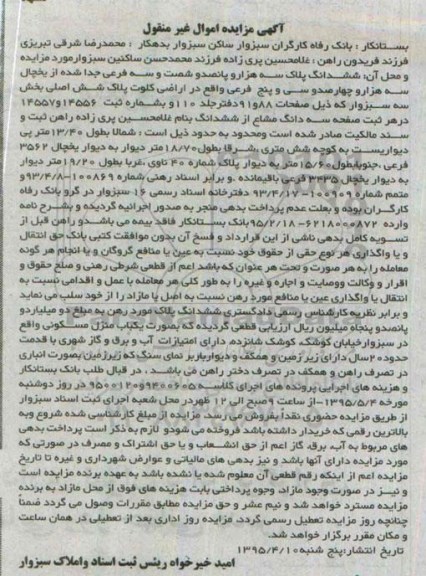 آگهی مزایده اموال غیر منقول
بستانکار : بانک رفاه کارگران سبزوار ساکن سبزوار بدهکار : محمدرضا شرقی تبریزی
فرزند فریدون راهن : غلامحسین پری زاده فرزند محمدحسن ساکنین سبزوار مورد مزایده
و محل آن: ششدانگ پلاک سه هزار و پانصد و شصت و سه فرعی جدا شده از یخچال
سه هزار و چهارصد و سی و پنج فرعی واقع در اراضی کلوت پلاک شش اصلی بخش
سه سبزوار که ذیل صفحات ۸۸و۹۱ دفترجلد ۱۱۰ و بشماره ثبت ۱۴۵۵۶و۱۴۵۵۷
در هر ثبت صفحه سه دانگ مشاع از ششدانگ بنام غلامحسین پری زاده راهن ثبت و
سند مالکیت صادر شده است ومحدود به حدود ذیل است : شمالا بطول ۱۳/۴۰متر پی
دیواریست به کوچه شش متری ،شرقا بطول۱۸/۷۰متر دیوار به دیوار یخچال ۳۵۶۲
فرعی ،جنوبابطول۱۵/۶۰متر به دیوار پلاک شماره ۴۰ ناوی ،غربا بطول ۱۹/۲۰متر دیوار
به دیوار یخچال ۳۴۳۵ فرعی باقیمانده .و برابر اسناد رهنی شماره ۱۰۰۸۶۹-۹۳/۴/۸و
متمم شماره ۱۰۰۹۰۹-۹۳/۴/۱۷ دفترخانه اسناد رسمی ۱۶ سبزوار در گرو بانک رفاه
کارگران بوده و بعلت عدم پرداخت بدهی منجر به صدور اجرائیه گردیده و بشرح نامه
وارده ۶۲۱۸۰۰۰۸۷۲-۹۵/۲/۱۸بانک بستانکار فاقد بیمه می باشدو راهن قبل از
تسویه کامل بدهی ناشی از این قرارداد و فسخ آن بدون موافقت کتبی بانک حق انتقال
و یا واگذاری هر نوع حقی از حقوق خود نسبت به عین یا منافع گروگان و یا انجام هر گونه
معامله را به هر صورت و تحت هر عنوان که باشد اعم از قطعی شرطی رهنی و صلح حقوق و
اقرار و وکالت ووصایت و اجاره و غیره را به طور کلی هر معامله با عمل و اقدامی نسبت به
انتقال یا واگذاری عین یا منافع مورد رهن نسبت به اصل یا مازاد را از خود سلب می نماید
و برابر نظریه کارشناس رسمی دادگستری ششدانگ پلاک مورد رهن به مبلغ دو میلیارد و
پانصد و پنجاه میلیون ریال ارزیابی قطعی گردیده که بصورت یکباب منزل مسکونی واقع
در سبزوار خیابان کوشک، کوشک شانزده، دارای امتیازات آب و برق و گاز شهری با قدمت
حدود ۲۰سال دارای زیر زمین و همکف و دیوار باربر نمای سنگ که زیرزمین بصورت انباری
در تصرف راهن و همکف در تصرف دختر راهن می باشد . در قبال طلب بانک بستانکار
و هزینه های اجرایی پرونده های اجرای کلاسه ۹۴۰۰۶۰۵و۹۵۰۰۱۲۰ در روز دوشنبه
مورخه ۱۳۹۵/۵/۴-از ساعت ۹صبح الی ۱۲ ظهردر محل شعبه اجرای ثبت اسناد سبزوار
از طریق مزایده حضوری نقداً بفروش می رسد. مزایده از مبلغ کارشناسی شده شروع وبه
بالاترین رقمی که خریدار داشته باشد فروخته می شودو لازم به ذکر است پرداخت بدهی
های مربوط به آب، برق، گاز اعم از حق انشعاب و یا حق اشتراک و مصرف در صورتی که
مورد مزایده دارای آنها باشد و نیز بدهی های مالیاتی و عوارض شهرداری و غیره تا تاریخ
مزایده اعم از اینکه رقم قطعی آن معلوم شده یا نشده باشد به عهده برنده مزایده است
و نیز در صورت وجود مازاد، وجوه پرداختی بابت هزینه های فوق از محل مازاد به برنده
مزایده مسترد خواهد شد و نیم عشر و حق مزایده مطابق مقررات وصول می گردد ضمناً
چنانچه روز مزایده تعطیل رسمی گردد، مزایده روز اداری بعد از تعطیلی در همان ساعت
و مکان مقرر برگزار خواهد شد.
تاریخ انتشار:پنج شنبه۱۳۹۵/۴/۱۰
امید خیرخواه رییس ثبت اسناد واملاک سبزوار